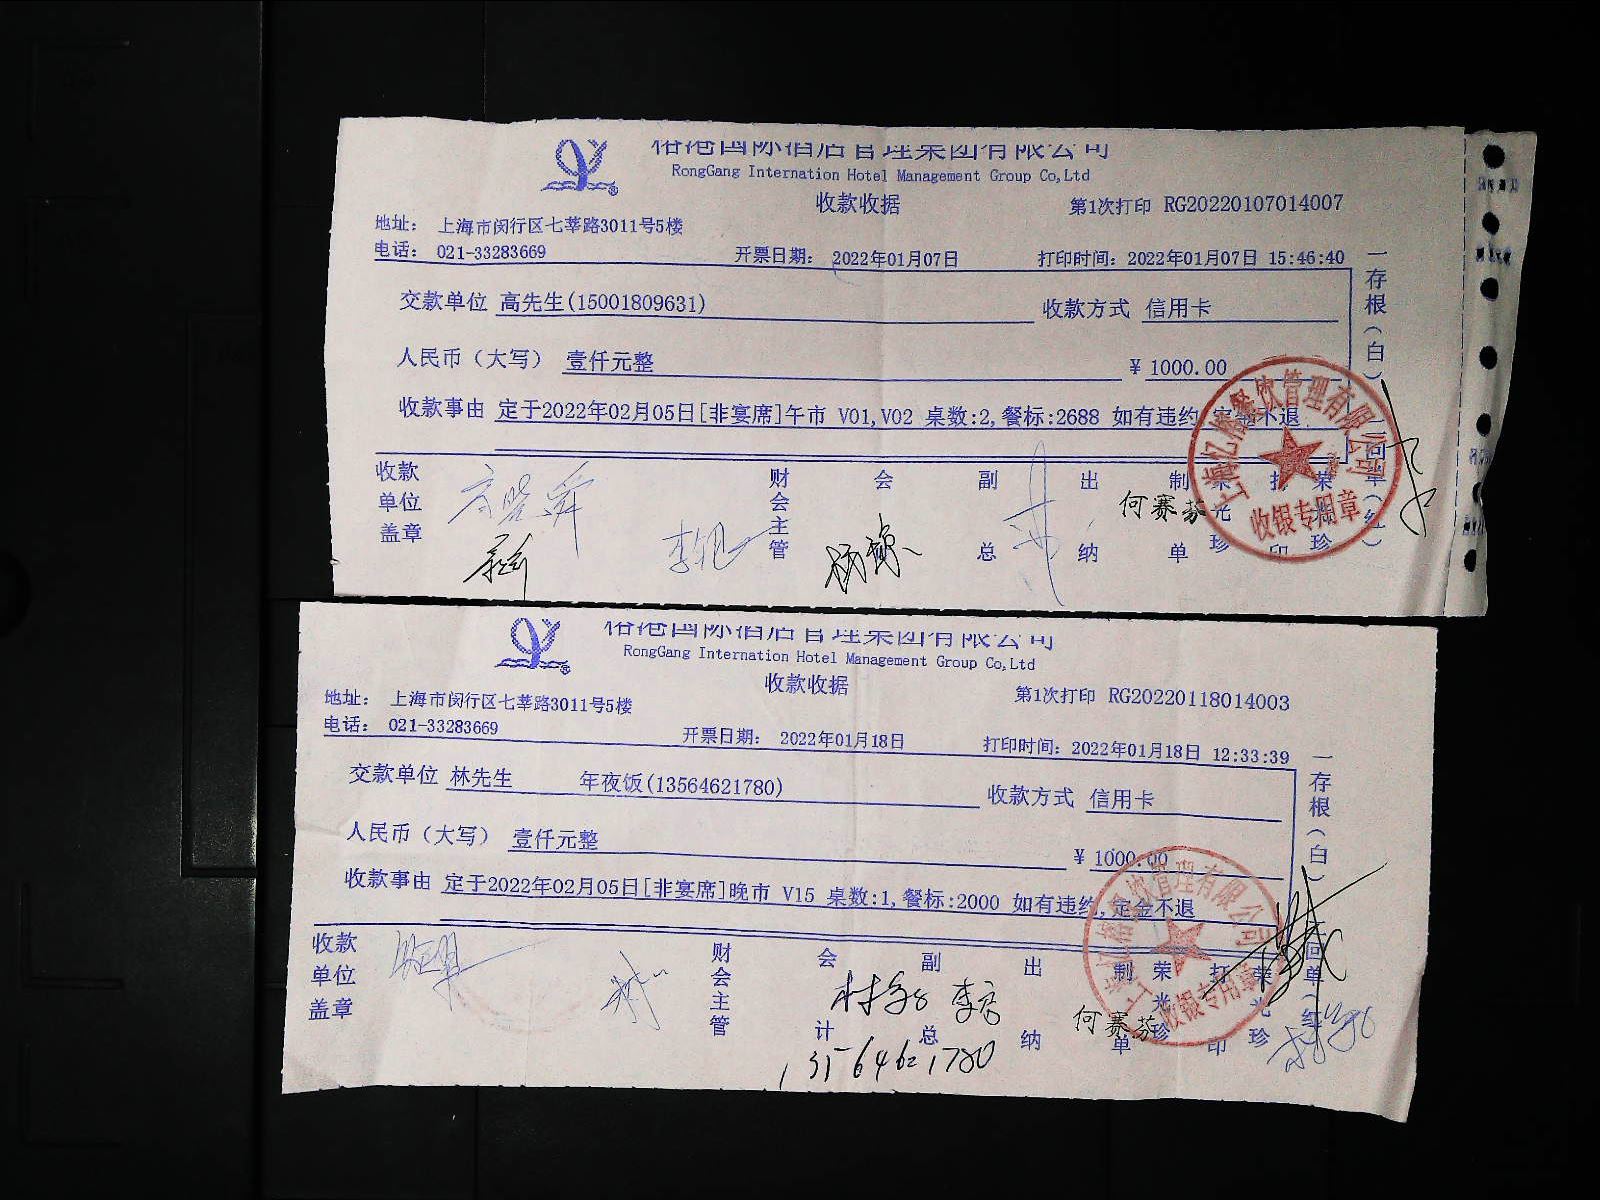 榕港国际酒店管理集团有限公司
RongGang Internation Hotel Management Group Co,Ltd
收款收据
第1次打印 RG20220107014007
地址： 上海市闵行区七莘路3011号5楼
电话： 021-33283669
开票日期： 2022年01月07日
打印时间：2022年01月07日 15:46:40
交款单位 高先生(15001809631)
收款方式 信用卡
人民币（大写） 壹仟元整
¥ 1000.00
收款事由 定于2022年02月05日[非宴席]午市 V01,V02 桌数:2,餐标:2688 如有违约,定金不退
收款单位盖章
财会主管
会
副总
出纳
制单
荣光珍
打印
荣光珍
何赛芬
一存根（白）
二回单（红）
餐饮管理有限公司
收银专用章
榕港国际酒店管理集团有限公司
RongGang Internation Hotel Management Group Co,Ltd
收款收据
第1次打印 RG20220118014003
地址： 上海市闵行区七莘路3011号5楼
电话： 021-33283669
开票日期： 2022年01月18日
打印时间：2022年01月18日 12:33:39
交款单位 林先生 年夜饭(13564621780)
收款方式 信用卡
人民币（大写） 壹仟元整
¥ 1000.00
收款事由 定于2022年02月05日[非宴席]晚市 V15 桌数:1,餐标:2000 如有违约,定金不退
收款单位盖章
财会主管
会计
副总
出纳
制单
荣光珍
打印
荣光珍
何赛芬
13564621780
一存根（白）
二回单（红）
餐饮管理有限公司
收银专用章